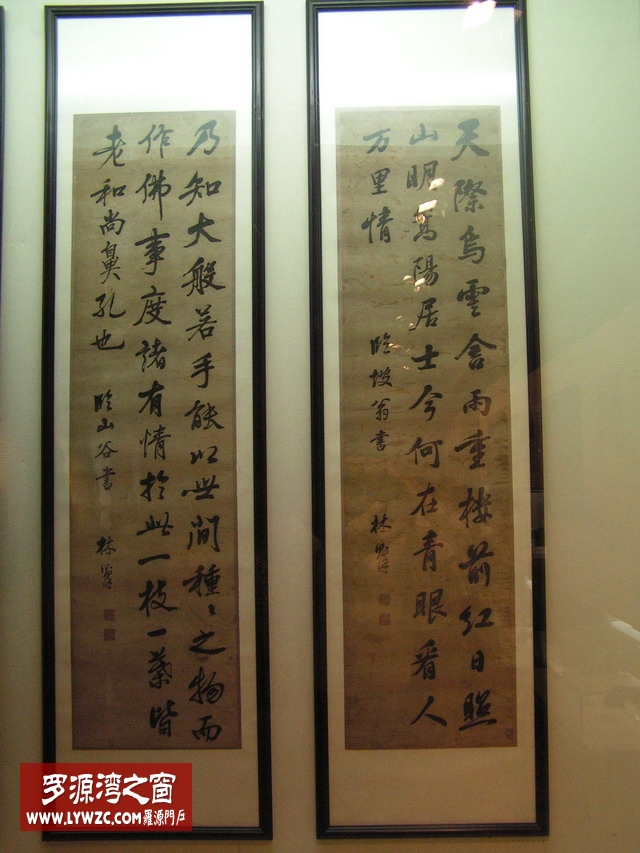 天際烏雲含雨重樓前紅日照
山明嵩陽居士今何在青眼看人
万里情 臨坡翁書 林則徐
乃知大般若手能以世間種〻之物而
作佛事度諸有情於此一枝一葉皆
老和尚鼻孔也 臨山谷書 林則徐
罗源湾之窗
www.LYWZC.com羅源門戶